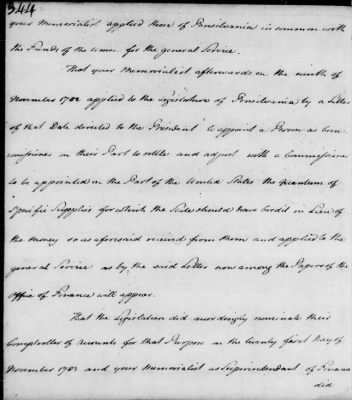 344
your Memorialist applied those of Pensilvania in common with
the Funds of the Union for the general Service.
That your Memorialist afterwards on the ninth of
November 1782 applied to the Legislature of Pensilvania by a Letter
of that Date directed to the President to appoint a Person as Com
missioner on their Part to settle and adjust with a Commissioner
to be appointed on the Part of the United States the quantum of
Specific Supplies for which the State should have Credit in Lieu of
the money so as aforesaid received from them and applied to the
general Service as by the said Letter now among the Papers of the
Office of Finance will appear.
That the Legislature did accordingly nominate their
Comptroller of accounts for that Purpose on the twenty first Day of
November 1782 and your Memorialist as Superintendant of Finance
did